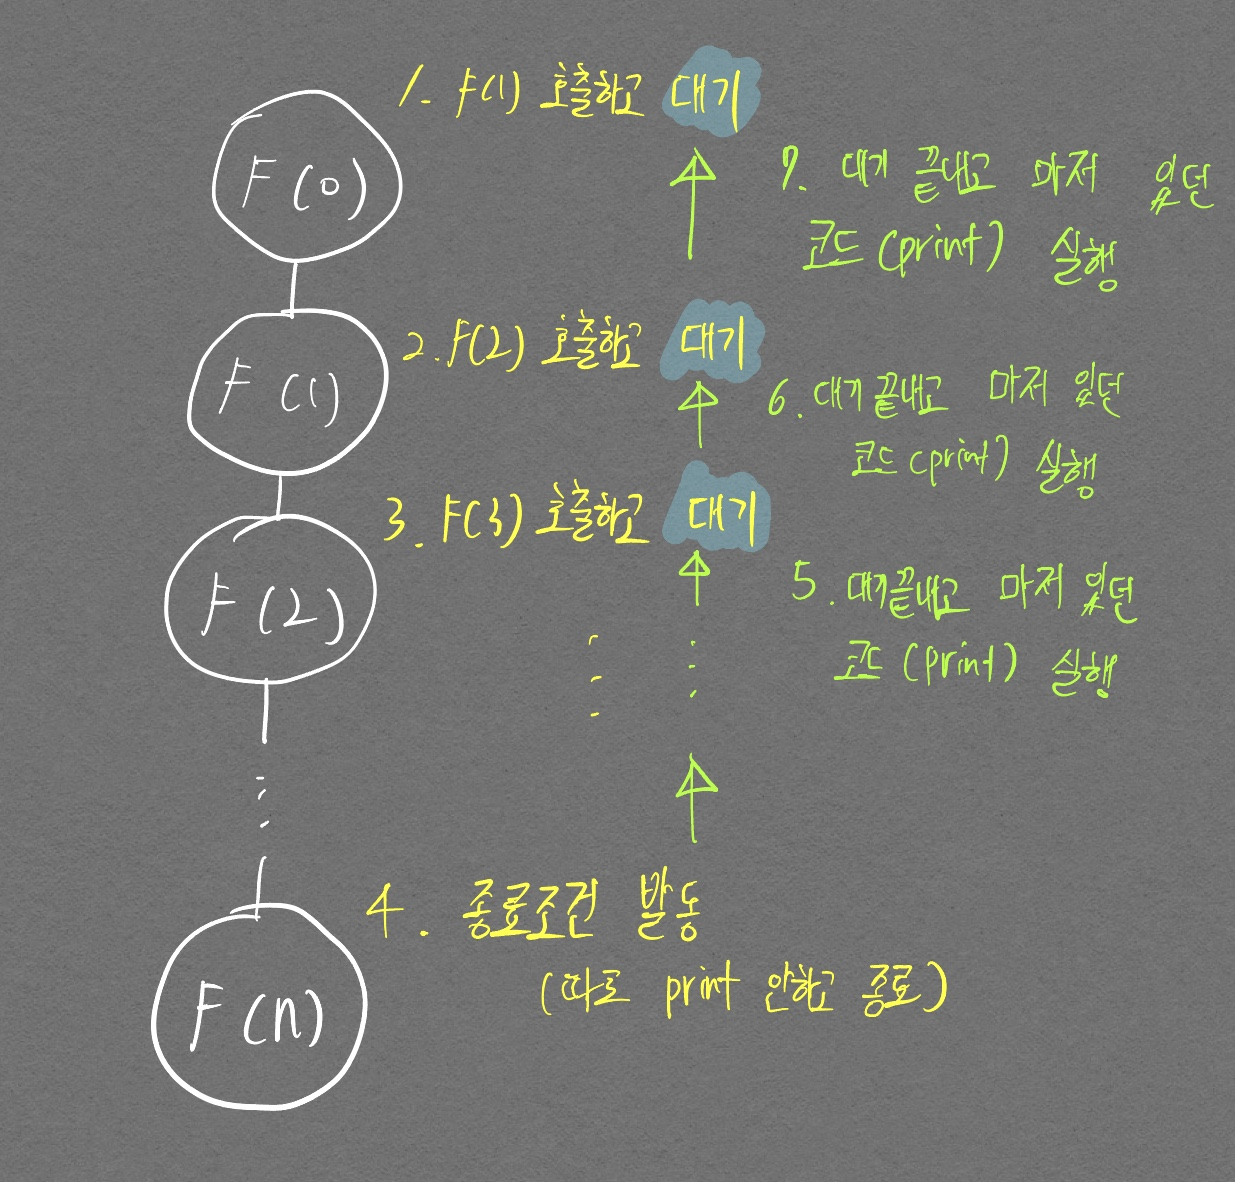 F(0)
1. F(1) 호출하고 대기
7. 대기 끝내고 마저 있던
코드(print) 실행
F(1)
2. F(2) 호출하고 대기
6. 대기 끝내고 마저 있던
코드(print) 실행
F(2)
3. F(3) 호출하고 대기
5. 대기끝내고 마저 있던
코드(print) 실행
F(n)
4. 종료조건 발동
(따로 print 안하고 종료)